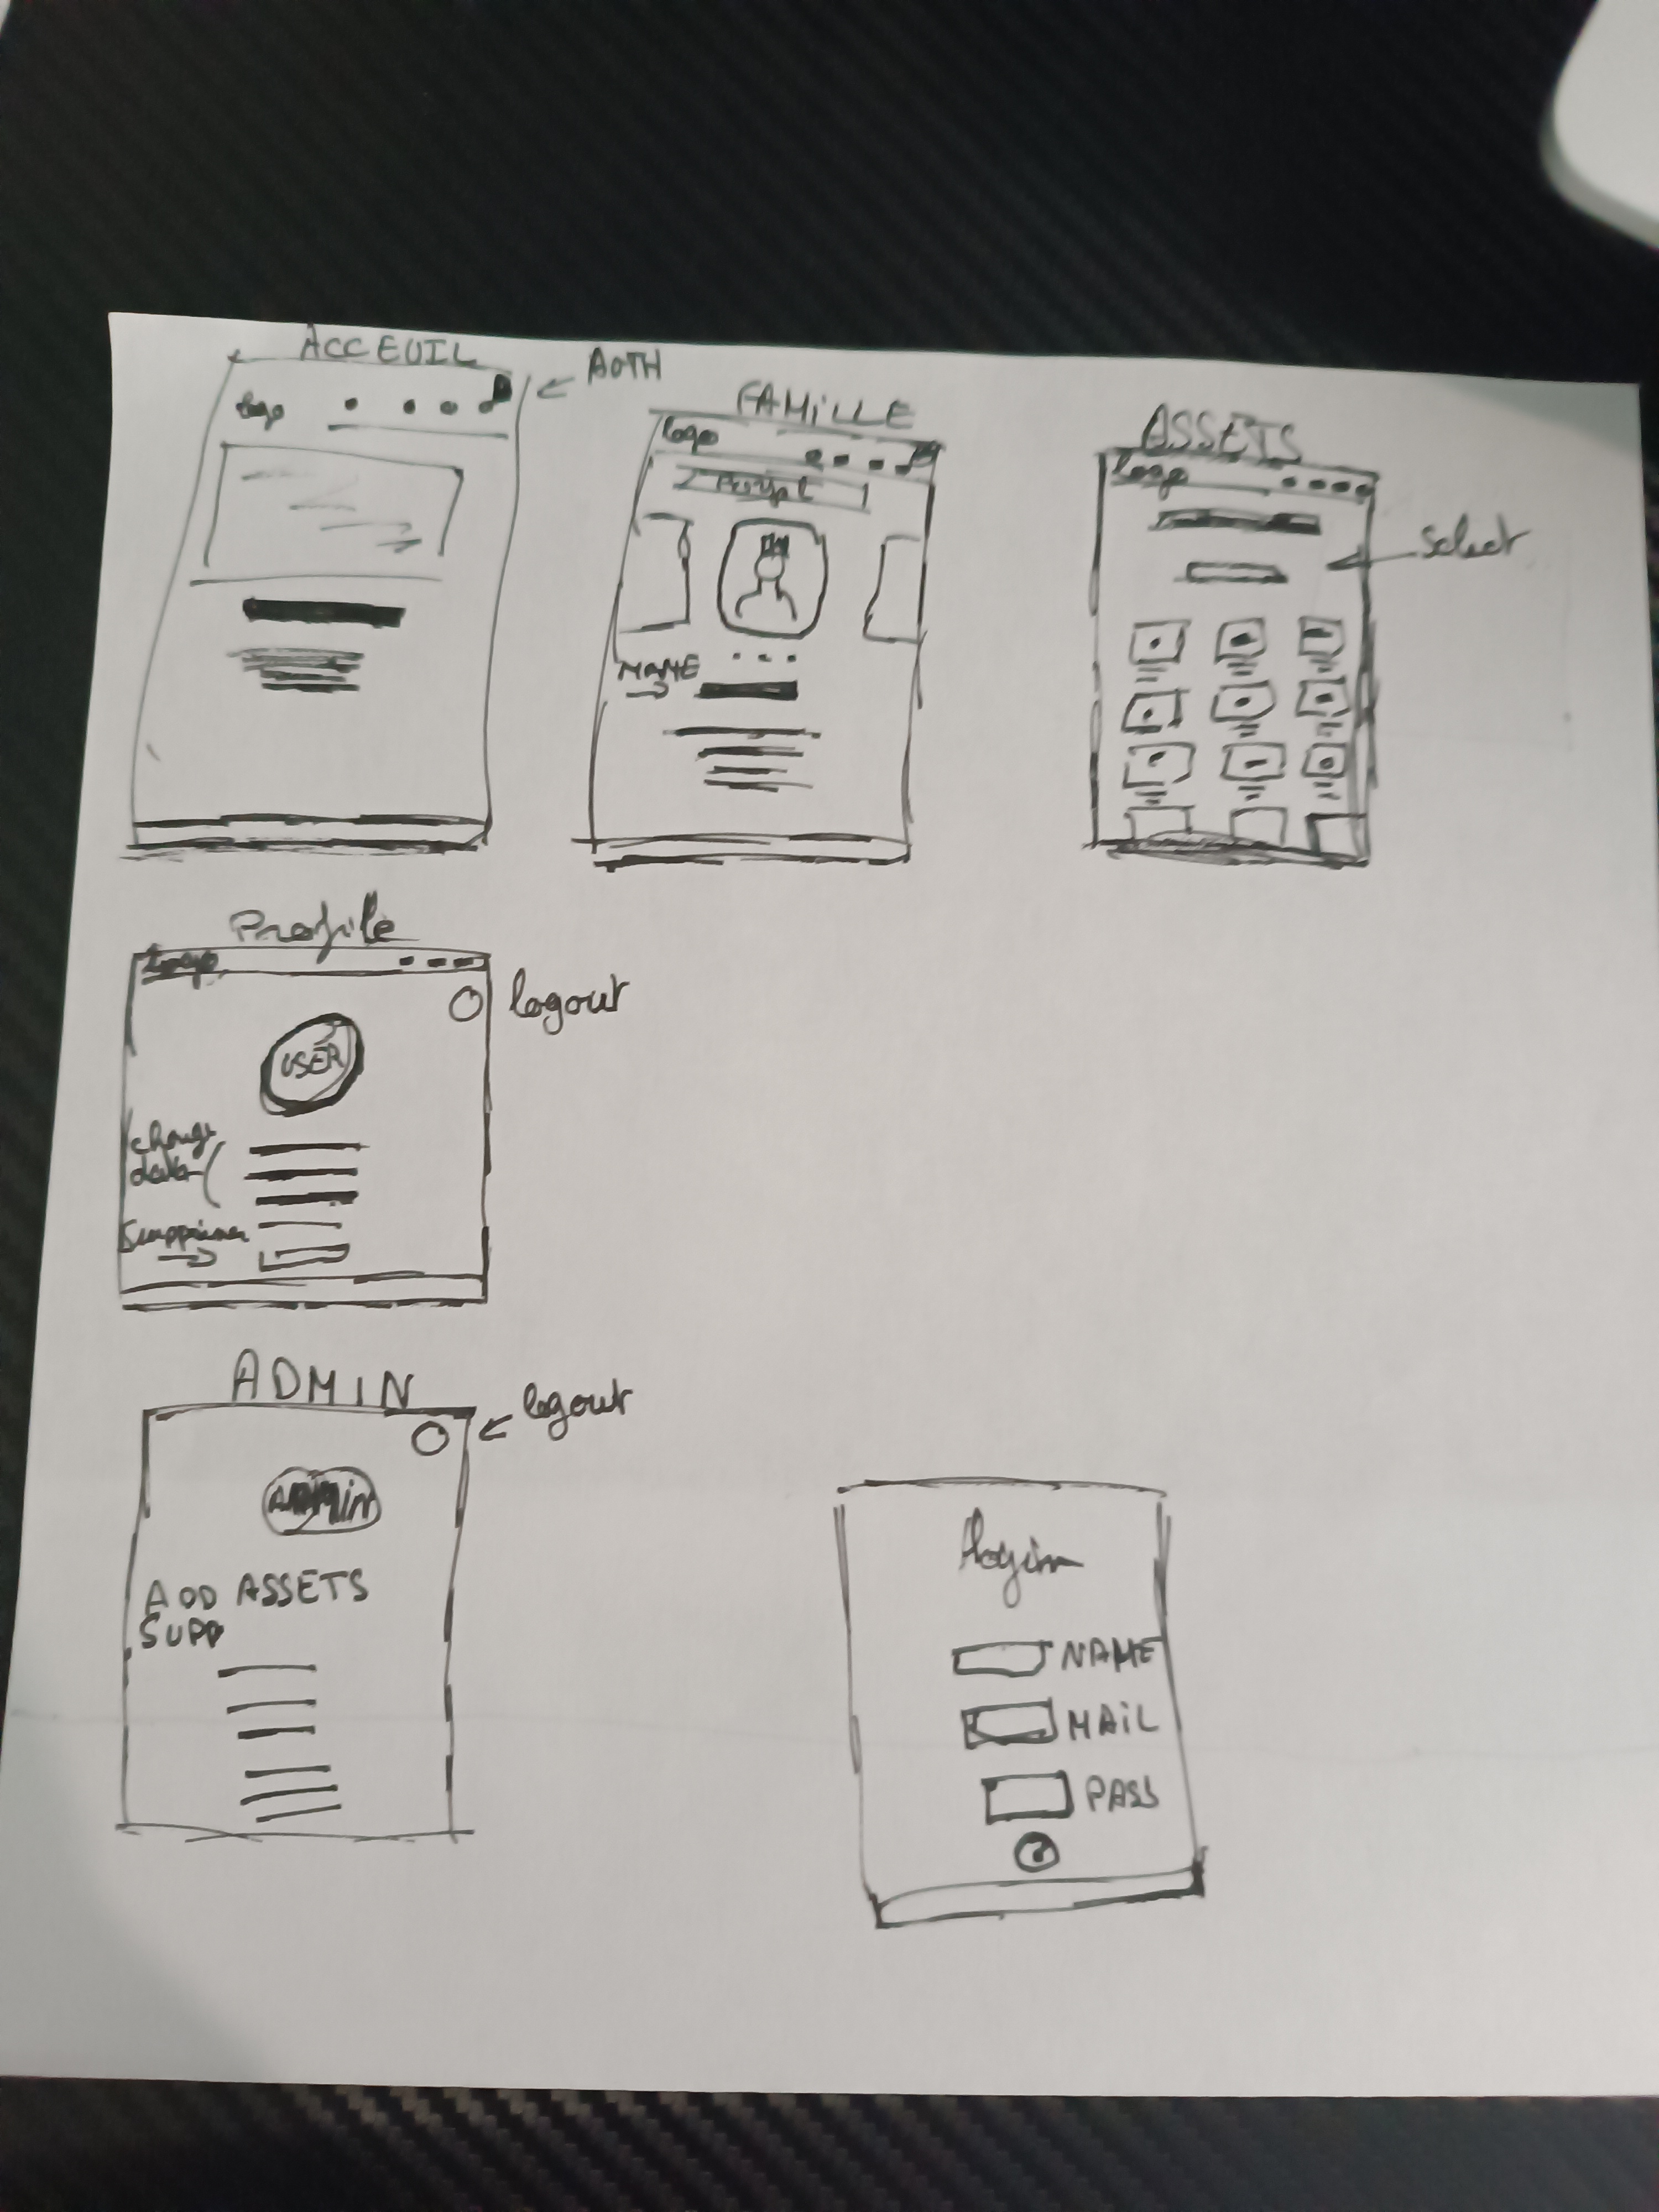 ACCEUIL
AOTH
logo
FAMILLE
logo
Royal
NAME
ASSETS
Logo
Select
Profile
Logo
logout
USER
change
data
Supprimer
ADMIN
logout
ADMin
ADD ASSETS
SUPP
login
NAME
MAiL
PASS